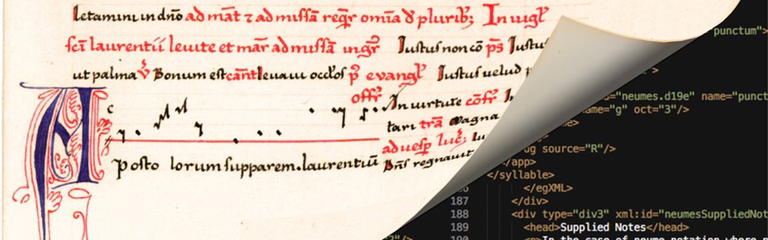 Letamini in dño ad mãt ⁊ ad missã reqr̃ omĩa ð plurib; In uigl̃
sc̃i laurentii leuite et mar̃ ad missã ingr̃ Justus non cõ ps̃ Justus
ut palma v̄ Bonum est cãnt leuaui occl̃os p̃ evangl̃ Justus velud p
offr̃
In uirtute cõr̃
c
tari trã magna
ad uesp̃ luc;
A posto lorum supparem. laurentiũ
regnauit
punctum">
="neumes.d19e" name="punct
ame="g" oct="3"/>
ug source="R"/>
</app>
</syllable>
</egXML>
187 </div>
188 <div type="div3" xml:id="neumesSuppliedNot
189 <head>Supplied Notes</head>
190 <p>In the case of neume notation where